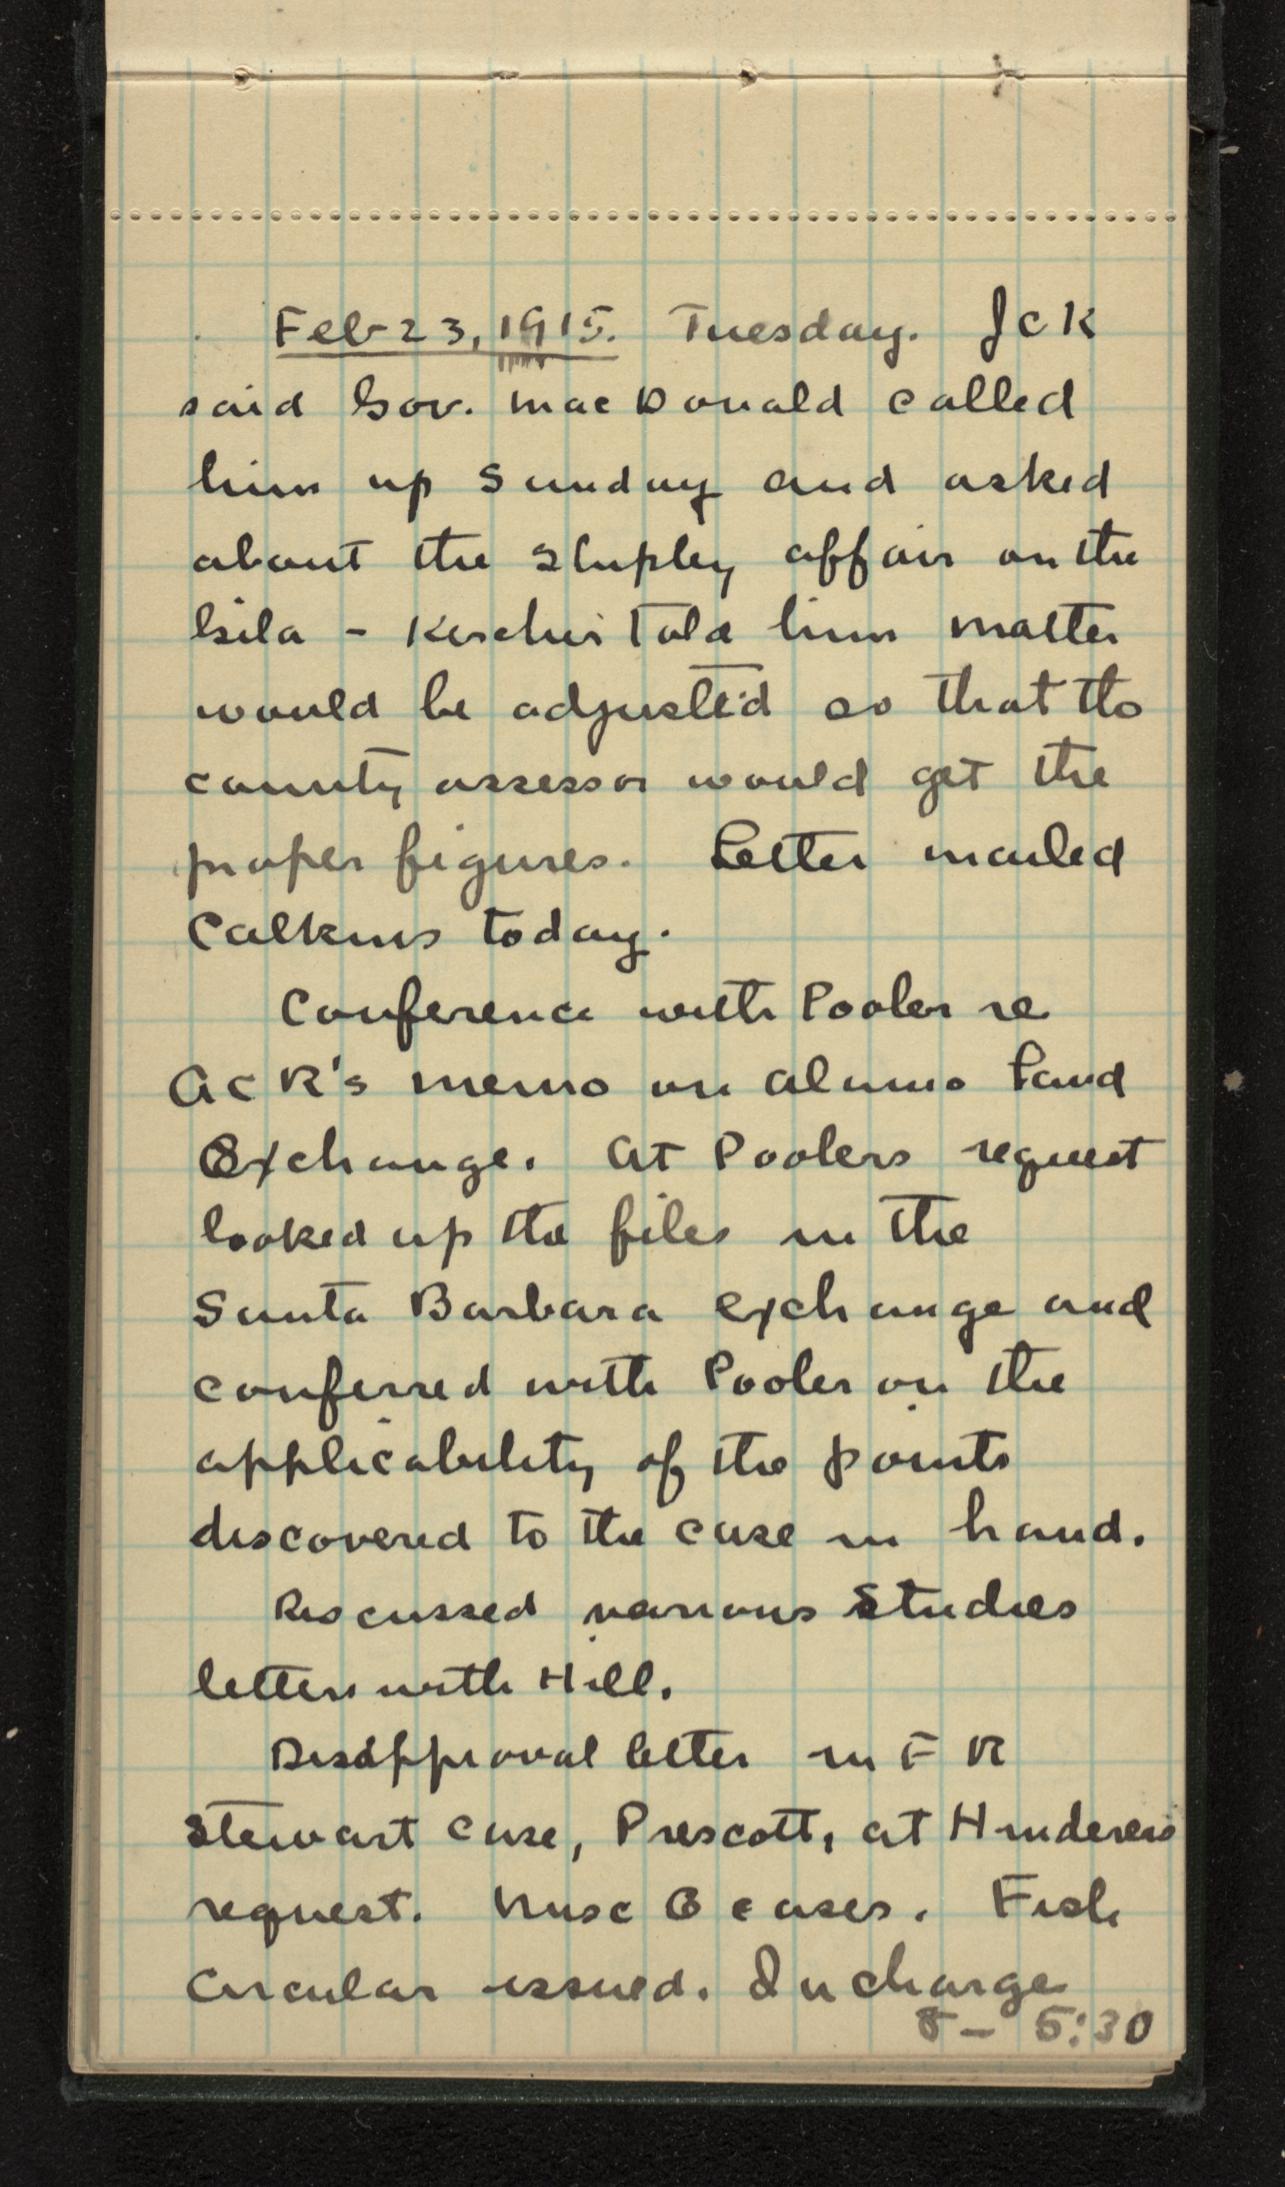 Feb 23, 1915. Tuesday. JCK
said Gov. MacDonald called
him up Sunday and asked
about the Shipley affair on the
Gila - Kircher told him matter
would be adjusted so that the
county assessor would get the
proper figures. Letter mailed
Calkins today.
Conference with Pooler re
ACR's memo on Alamo Land
Exchange. At Poolers request
looked up the files in the
Santa Barbara exchange and
conferred with Pooler on the
applicability of the points
discovered to the case in hand.
Discussed various Studies
letters with Hill.
Disapproval letter in F R
Stewart case, Prescott, at Hinderers
request. Misc G cases. Fish
Circular issued. In charge
8 - 5:30